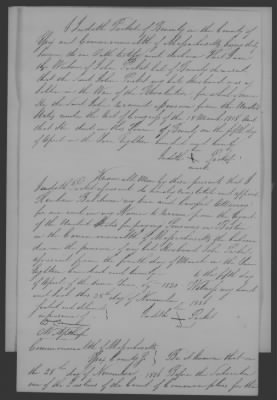 I Judith Pickett of Beverly in the County of
Essex and Commonwealth of Massachusetts being duly
sworn do on Oath testify and declare That I am
the Widow of John Pickett late of Beverly deceased,
that the said John Pickett was a
soldier in the War of the Revolution, for which service
he the said John received a pension from the United
States under the Act of Congress of the 18 March 1818 and
that he died in the Town of Beverly on the fifth day
of April in the year Eighteen hundred and twenty
Judith Pickett
mark
Know all Men by these presents that I
Judith Pickett aforesaid do hereby constitute and appoint
my true and lawful Attorney
for me and in my Name to receive from the Agent
of the United States for paying Pensions in Boston
in the Commonwealth of Massachusetts the balance
due on the pension of my late Husband John Pickett
aforesaid from the fourth day of March in the Year
Eighteen hundred and twenty to the fifth day
of April of the same Year 1820 Witness my hand
and Seal this 28th day of November 1836
Sealed and delivered
in presence of
Judith Pickett
Commonwealth of Massachusetts
Essex County Be it known that on
the 28th day of November, 1836 Before the Subscriber
one of the Justices of the Court of Common pleas for the